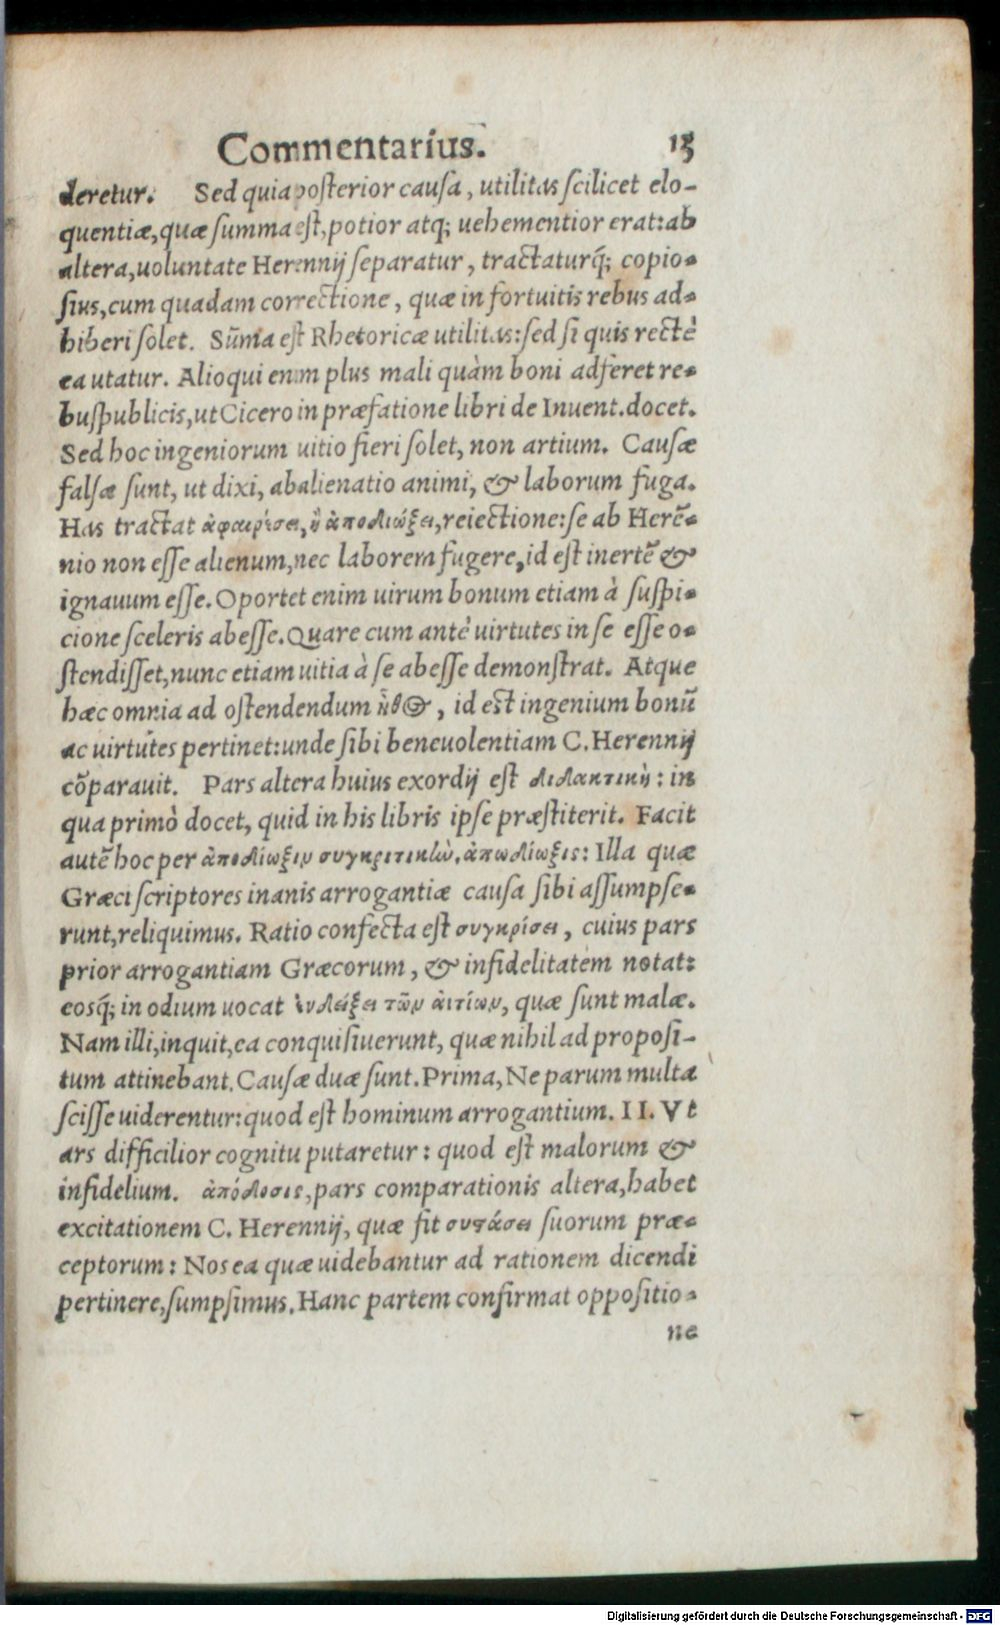 Commentarius. 15
deretur. Sed quia posterior causa, utilitas scilicet elo-
quentiæ, quæ summa est, potior atq; uehementior erat: ab
altera, uoluntate Herennij separatur, tractaturq́; copio-
sius, cum quadam correctione, quæ in fortuitis rebus ad-
hiberi solet. Sũma est Rhetoricæ utilitas: sed si quis rectè
ea utatur. Alioqui enim plus mali quàm boni adferet re-
buspublicis, ut Cicero in præfatione libri de Inuent. docet.
Sed hoc ingeniorum uitio fieri solet, non artium. Causæ
falsæ sunt, ut dixi, abalienatio animi, & laborum fuga.
Has tractat ἀφαιρέσει, ἢ ἀποδιώξει, reiectione: se ab Herẽ-
nio non esse alienum, nec laborem fugere, id est inertẽ &
ignauum esse. Oportet enim uirum bonum etiam à suspi-
cione sceleris abesse. Quare cum antè uirtutes in se esse o-
stendisset, nunc etiam uitia à se abesse demonstrat. Atque
hæc omnia ad ostendendum ἦθος, id est ingenium bonũ
ac uirtutes pertinet: unde sibi beneuolentiam C. Herennij
cõparauit. Pars altera huius exordij est διδακτικὴ: in
qua primò docet, quid in his libris ipse præstiterit. Facit
autẽ hoc per ἀποδίωξιν συγκριτικὴν. ἀπωδίωξις: Illa quæ
Græci scriptores inanis arrogantiæ causa sibi assumpse-
runt, reliquimus. Ratio confecta est συγκρίσει, cuius pars
prior arrogantiam Græcorum, & infidelitatem notat:
eosq́; in odium uocat ἐνδείξει τῶν ἀιτίων, quæ sunt malæ.
Nam illi, inquit, ea conquisiuerunt, quæ nihil ad proposi-
tum attinebant. Causæ duæ sunt. Prima, Ne parum multa
scisse uiderentur: quod est hominum arrogantium. II. Vt
ars difficilior cognitu putaretur: quod est malorum &
infidelium. ἀπόδοσις, pars comparationis altera, habet
excitationem C. Herennij, quæ fit συστάσει suorum præ-
ceptorum: Nos ea quæ uidebantur ad rationem dicendi
pertinere, sumpsimus. Hanc partem confirmat oppositio-
ne
Digitalisierung gefördert durch die Deutsche Forschungsgemeinschaft - DFG